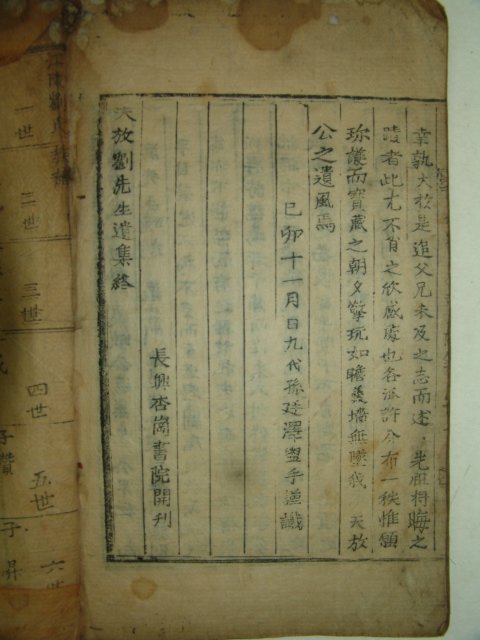 幸孰大於是追父兄未及之志而述 先祖將晦之
蹟者此尤不肖之欣感處也各派許分布一秩惟願
珍護而寶藏之朝夕擎玩如瞻羹墻無墜我 天放
公之遺風焉
己卯十一月日九代孫廷澤盥手謹識
長興杏崗書院開刊
天放劉先生遺集終
劉氏
一世
二世
三世
四世
五世
六世
子
子
昇